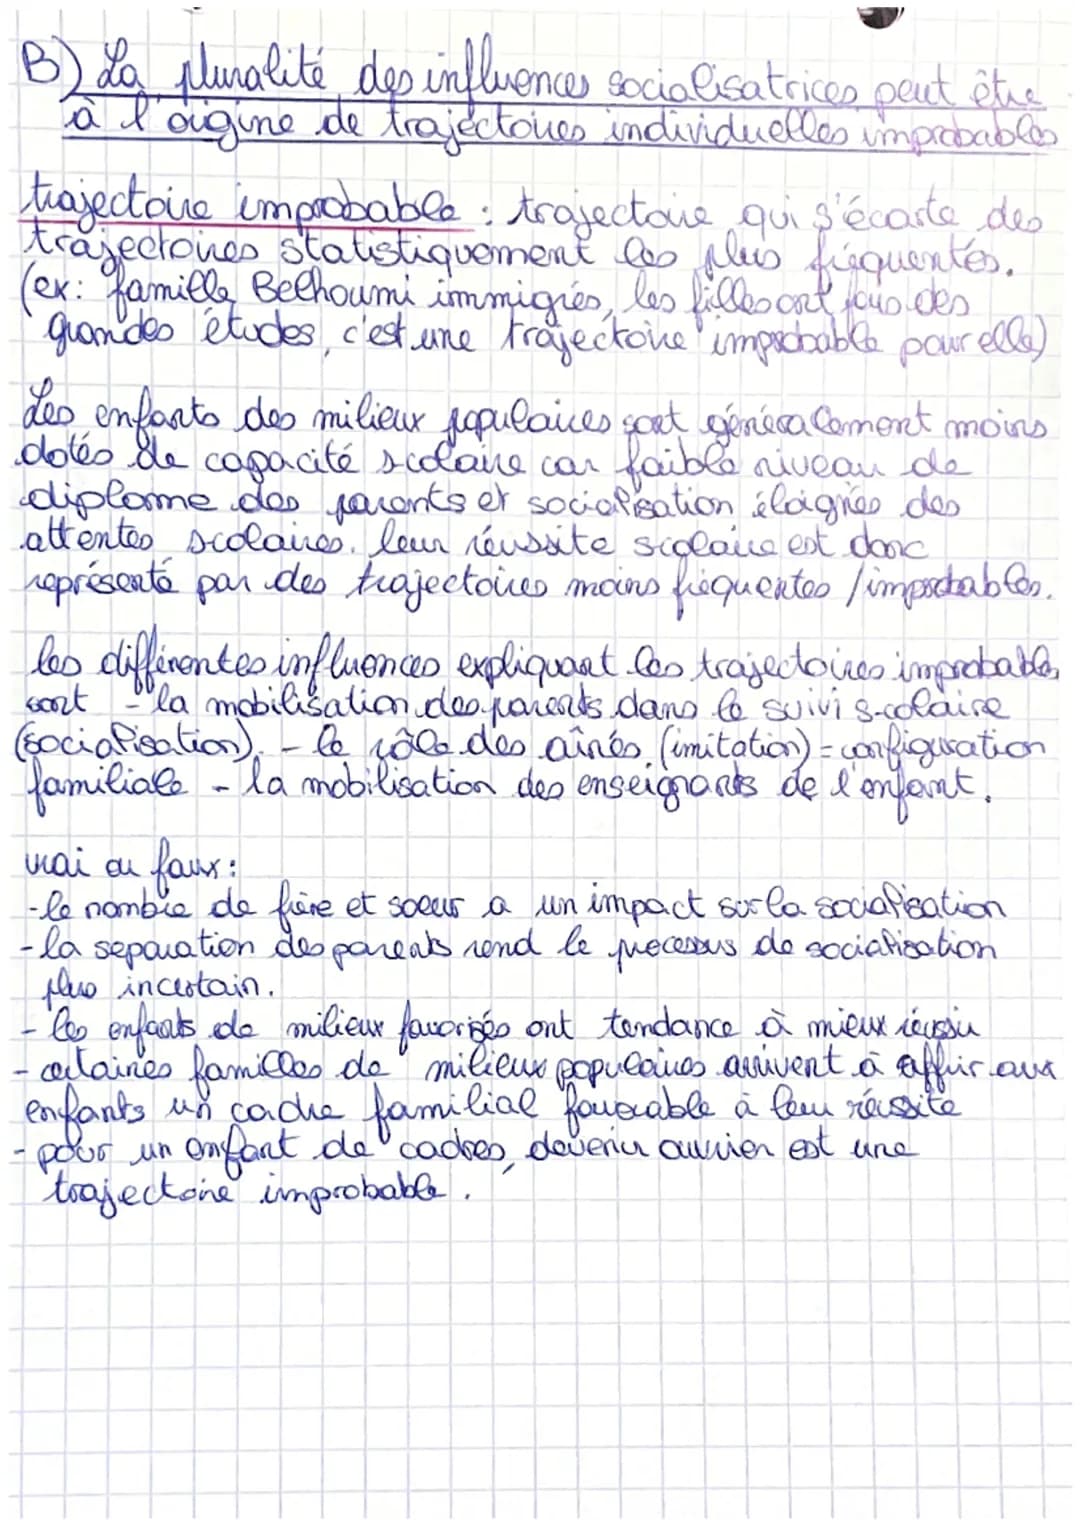 B) La pluralité des influences socialisatrices peut être
à l'origine de trajectoires individuelles improbables
trajectoire improbable : trajectoire qui s'écarte des
trajectoires statistiquement les plus fréquentés.
(ex: famille Belhoumi immigrés, les filles ont fais des
grandes études, c'est une trajectoire improbable pour elle)
Les enfants des milieux populaires sont généralement moins
dotés de capacité scolaire car faible niveau de
diplome des parents et socialisation éloignées des
attentes scolaires. leur réussite scolaire est donc
représenté par des trajectoires moins fréquentes / improbables.
les différentes influences expliquant les trajectoires improbables
sont - la mobilisation des parents dans le suivi scolaire
(socialisation). - le rôle des aînés (imitation) = configuration
familiale - la mobilisation des enseignants de l'enfant.
vrai ou faux :
- le nombre de frère et soeur a un impact sur la socialisation
- la separation des parents rend le processus de socialisation
plus incertain.
- les enfants de milieux favorisés ont tendance à mieux réussir
- certaines familles de milieux populaires arrivent à offrir aux
enfants un cadre familial favorable à leur réussite
- pour un enfant de cadres, devenir ouvrier est une
trajectoire improbable.